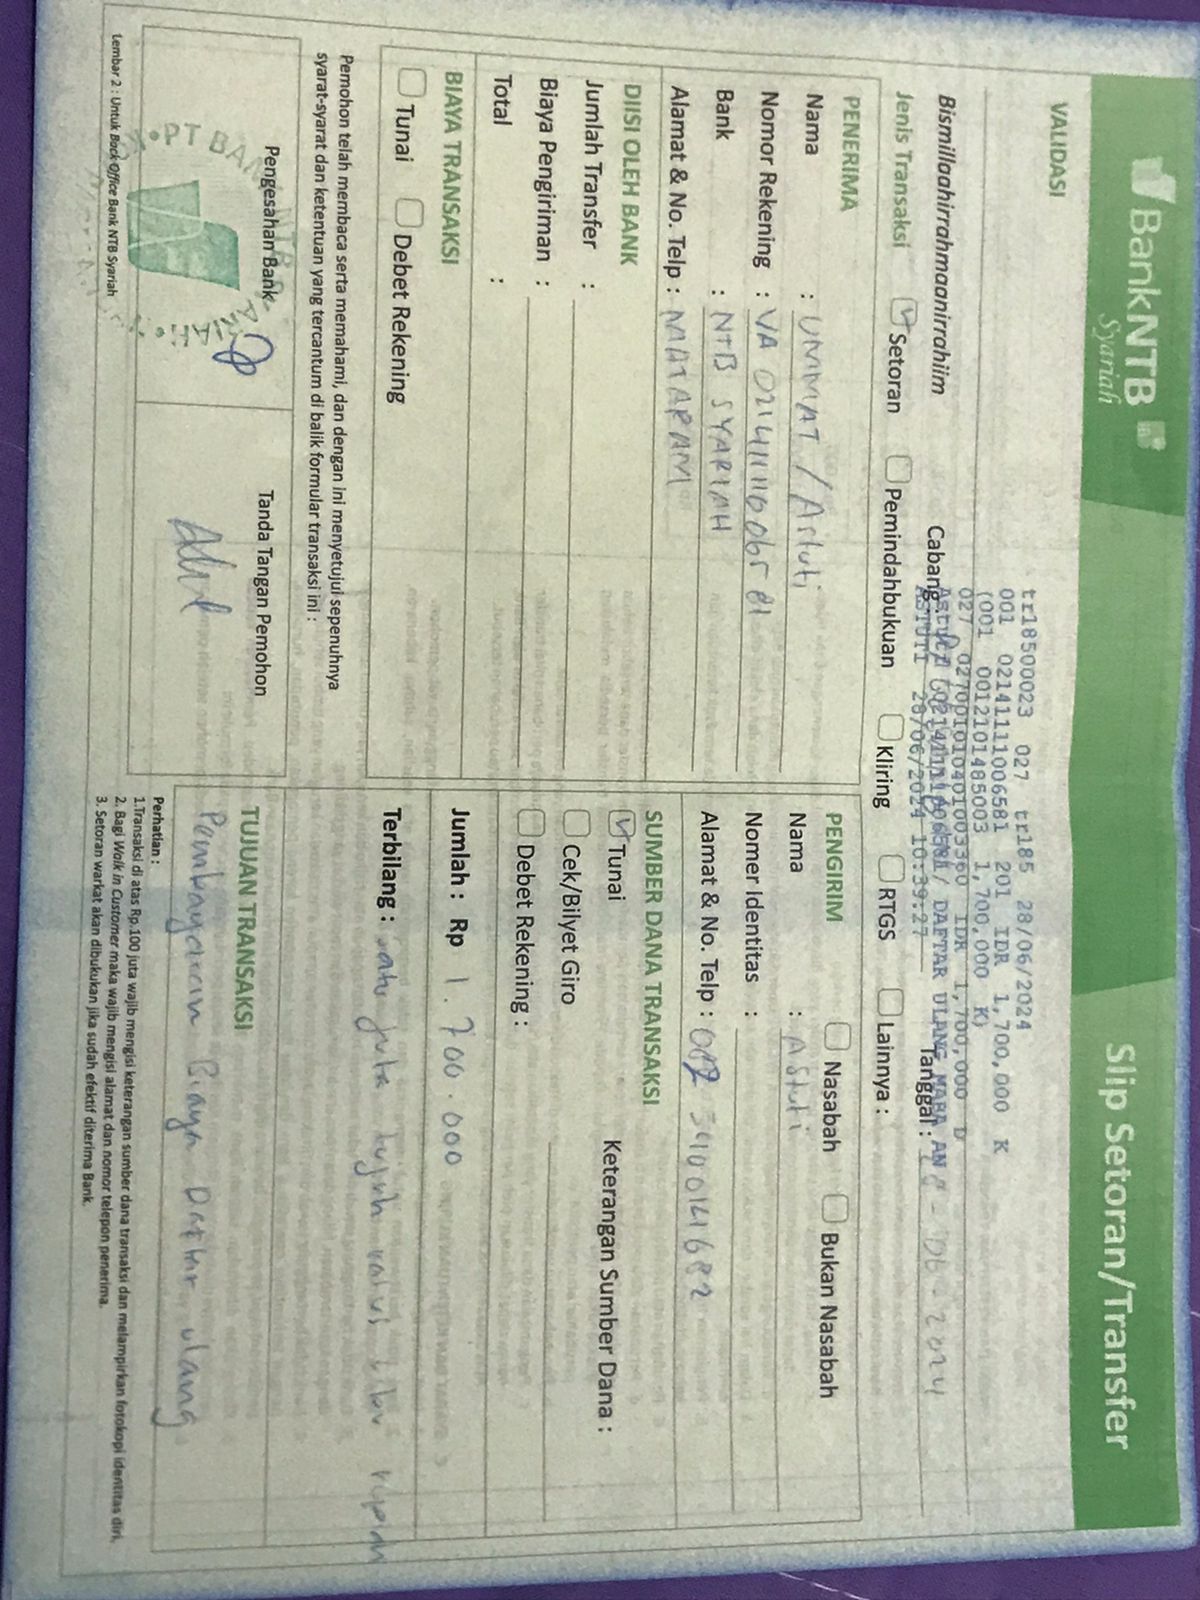 BankNTB
Syariah
Slip Setoran/Transfer
VALIDASI
tr18500023 027 tr185 28/06/2024
001 02141111006581 201 IDR 1,700,000 K
(001 0012101485003 1,700,000 K)
027 027001010401003360 IDR 1,700,000 D
DAFTAR ULANG MABA AN
ASTUTI 28/06/2024 10:39:27
Bismillaahirrahmaanirrahiim
Cabang :
Tanggal : 28-06-2024
Jenis Transaksi Setoran Pemindahbukuan Kliring RTGS Lainnya :
PENERIMA
Nama : UMMAT / Astuti
Nomor Rekening : VA
Bank : NTB SYARIAH
Alamat & No. Telp : MATARAM
PENGIRIM Nasabah Bukan Nasabah
Nama : Astuti
Nomer Identitas :
Alamat & No. Telp :
DIISI OLEH BANK
Jumlah Transfer :
Biaya Pengiriman :
Total :
SUMBER DANA TRANSAKSI
Tunai Keterangan Sumber Dana :
Cek/Bilyet Giro
Debet Rekening :
BIAYA TRANSAKSI
Tunai Debet Rekening
Jumlah : Rp 1.700.000
Terbilang : satu juta tujuh ratus ribu rupiah
Pemohon telah membaca serta memahami, dan dengan ini menyetujui sepenuhnya
syarat-syarat dan ketentuan yang tercantum di balik formular transaksi ini :
Pengesahan Bank
Tanda Tangan Pemohon
TUJUAN TRANSAKSI
Pembayaran Biaya Daftar ulang
Perhatian :
1.Transaksi di atas Rp.100 juta wajib mengisi keterangan sumber dana transaksi dan melampirkan fotokopi identitas diri.
2. Bagi Walk in Customer maka wajib mengisi alamat dan nomor telepon penerima.
3. Setoran warkat akan dibukukan jika sudah efektif diterima Bank.
Lembar 2 : Untuk Back Office Bank NTB Syariah